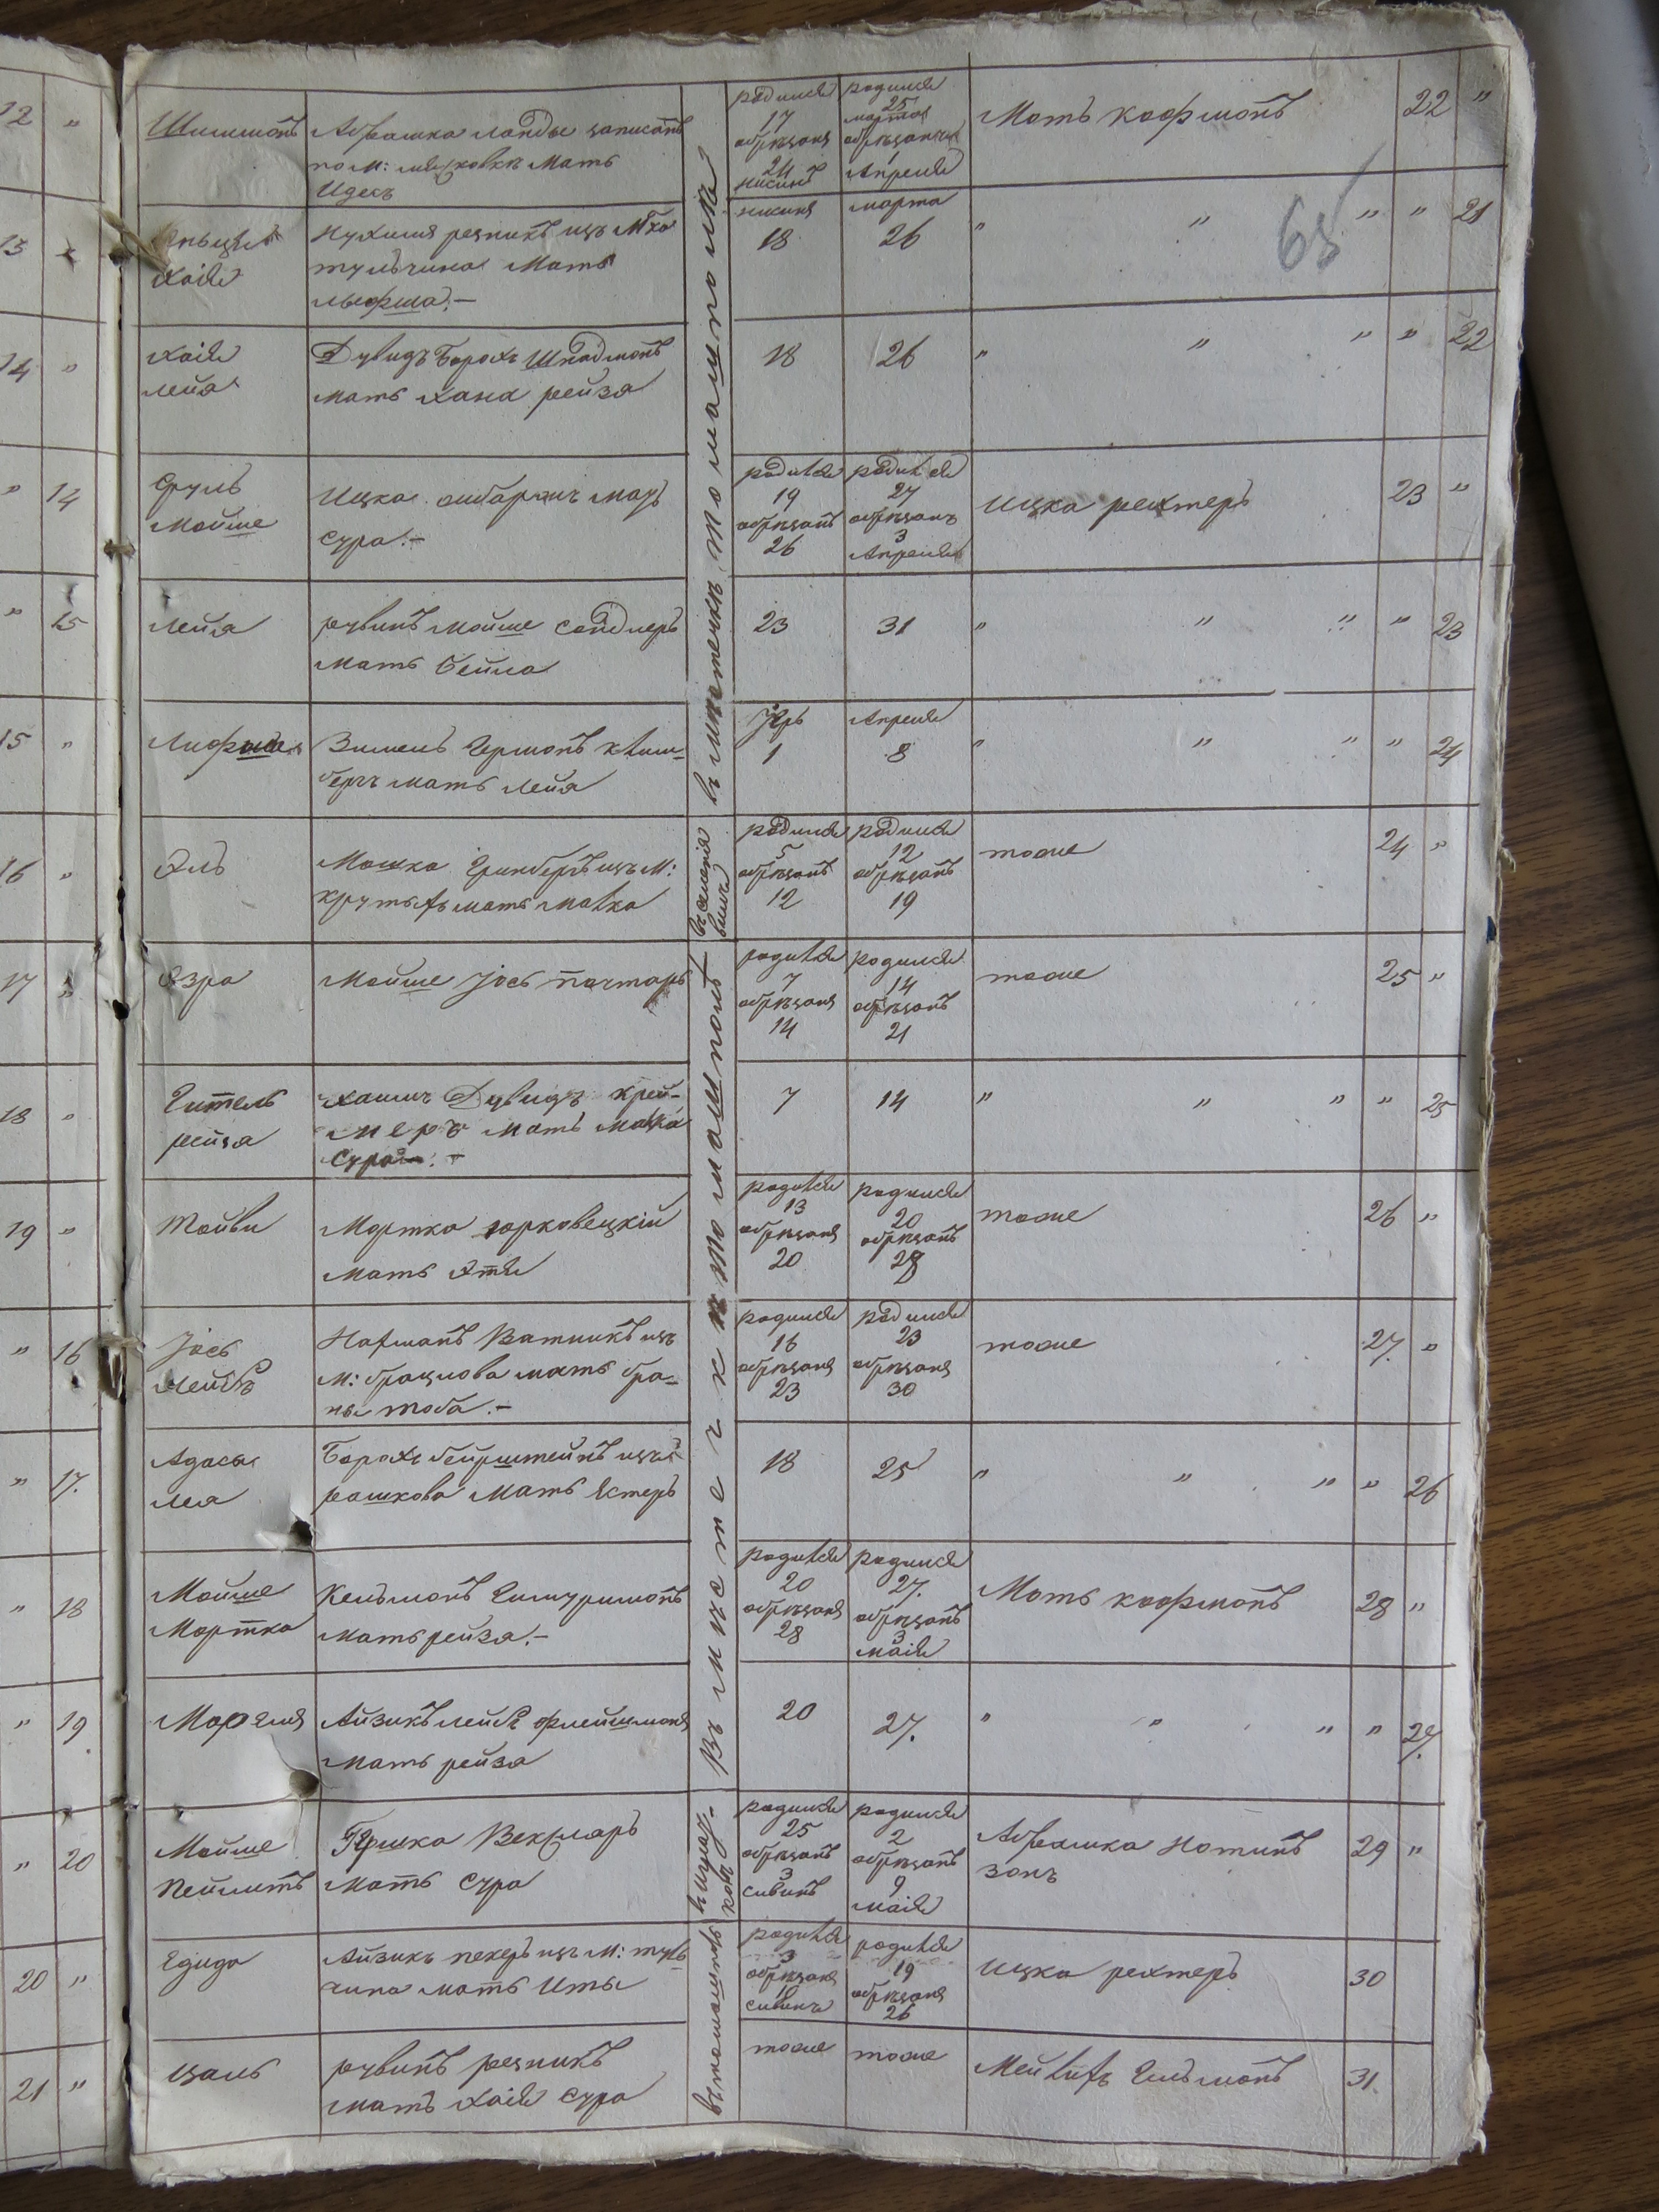 12 "
Шимшонъ
Абрашка ланды записанъ
по м: мясковкѣ мать
Идесъ
родился
17
обрѣзаня
24
нисинъ
родился
25
марта
обрѣзанъ
1
Апреля
Мотъ кофмонъ
22 "
13
Хаія
Нухимя резникъ изъ
тульчина мать
нисиня
18
марта
26
" " " " 21
65
14 "
Хаія
лейя
Дувидъ Борохъ Шпадмонъ
мать хана рейза
18
26
" " " " 22
" 14
Сруль
Мойше
Ицка
сура.-
родился
19
обрѣзанъ
26
родился
27
обрѣзанъ
3
Апреля
Ицка рехтеръ
23 "
" 15
Лейя
рувинъ мойше сандлеръ
мать бейла
23
31
" " " " 23
15 "
мать лейя
Iяръ
1
Апреля
8
" " " " 24
16 "
Эль
Мошка Гринбергъ изъ м:
крутыхъ мать малка
родился
5
обрѣзанъ
12
родился
12
обрѣзанъ
19
тоже
24 "
17
Эзра
Мойше Iось почтаръ
родился
7
обрѣзаня
14
родился
14
обрѣзанъ
21
тоже
25 "
18 "
Гитель
рейза
хаимъ Дувидъ крей-
меръ мать малка
сура.-
7
14
" " " " 25
19 "
Тойви
Мортка юрковецкій
мать Этя
родился
13
обрѣзаня
20
родился
20
обрѣзанъ
28
тоже
26 "
" 16
Iось
Лейбъ
Нахманъ Ватникъ изъ
м: брацлова мать бра-
на тоба.-
родился
16
обрѣзаня
23
родился
23
обрѣзаня
30
тоже
27. "
" 17.
Адасы
лея
Борохъ бейрштейнъ изъ
рашкова мать Эстеръ
18
25
" " " " 26
" 18
Мойше
Мортка
Кельмонъ
мать рейза.-
родился
20
обрѣзаня
28
родился
27.
обрѣзанъ
3
маія
Мотъ кофмонъ
28 "
" 19.
Айзикъ лейбъ флейшмоня
мать рейза
20
27.
" " " " 27.
" 20
Мойше
Гершка Векслеръ
мать сура
родился
25
обрѣзанъ
3
сивинъ
родился
2
обрѣзанъ
9
маія
Абрашка Нотинъ
зонъ
29 "
20 "
Едида
Айзикъ пекеръ изъ м: туль
чина мать Иты
родился
3
обрѣзаня
сивинъ
родился
19
обрѣзаня
26
Ицка рехтеръ
30
21 "
Цаль
рувинъ резникъ
мать хаія сура
тоже
тоже
31.
въ мѣстечкѣ томашполѣ
Въ мѣстечкѣ томашполѣ
въ томашполѣ